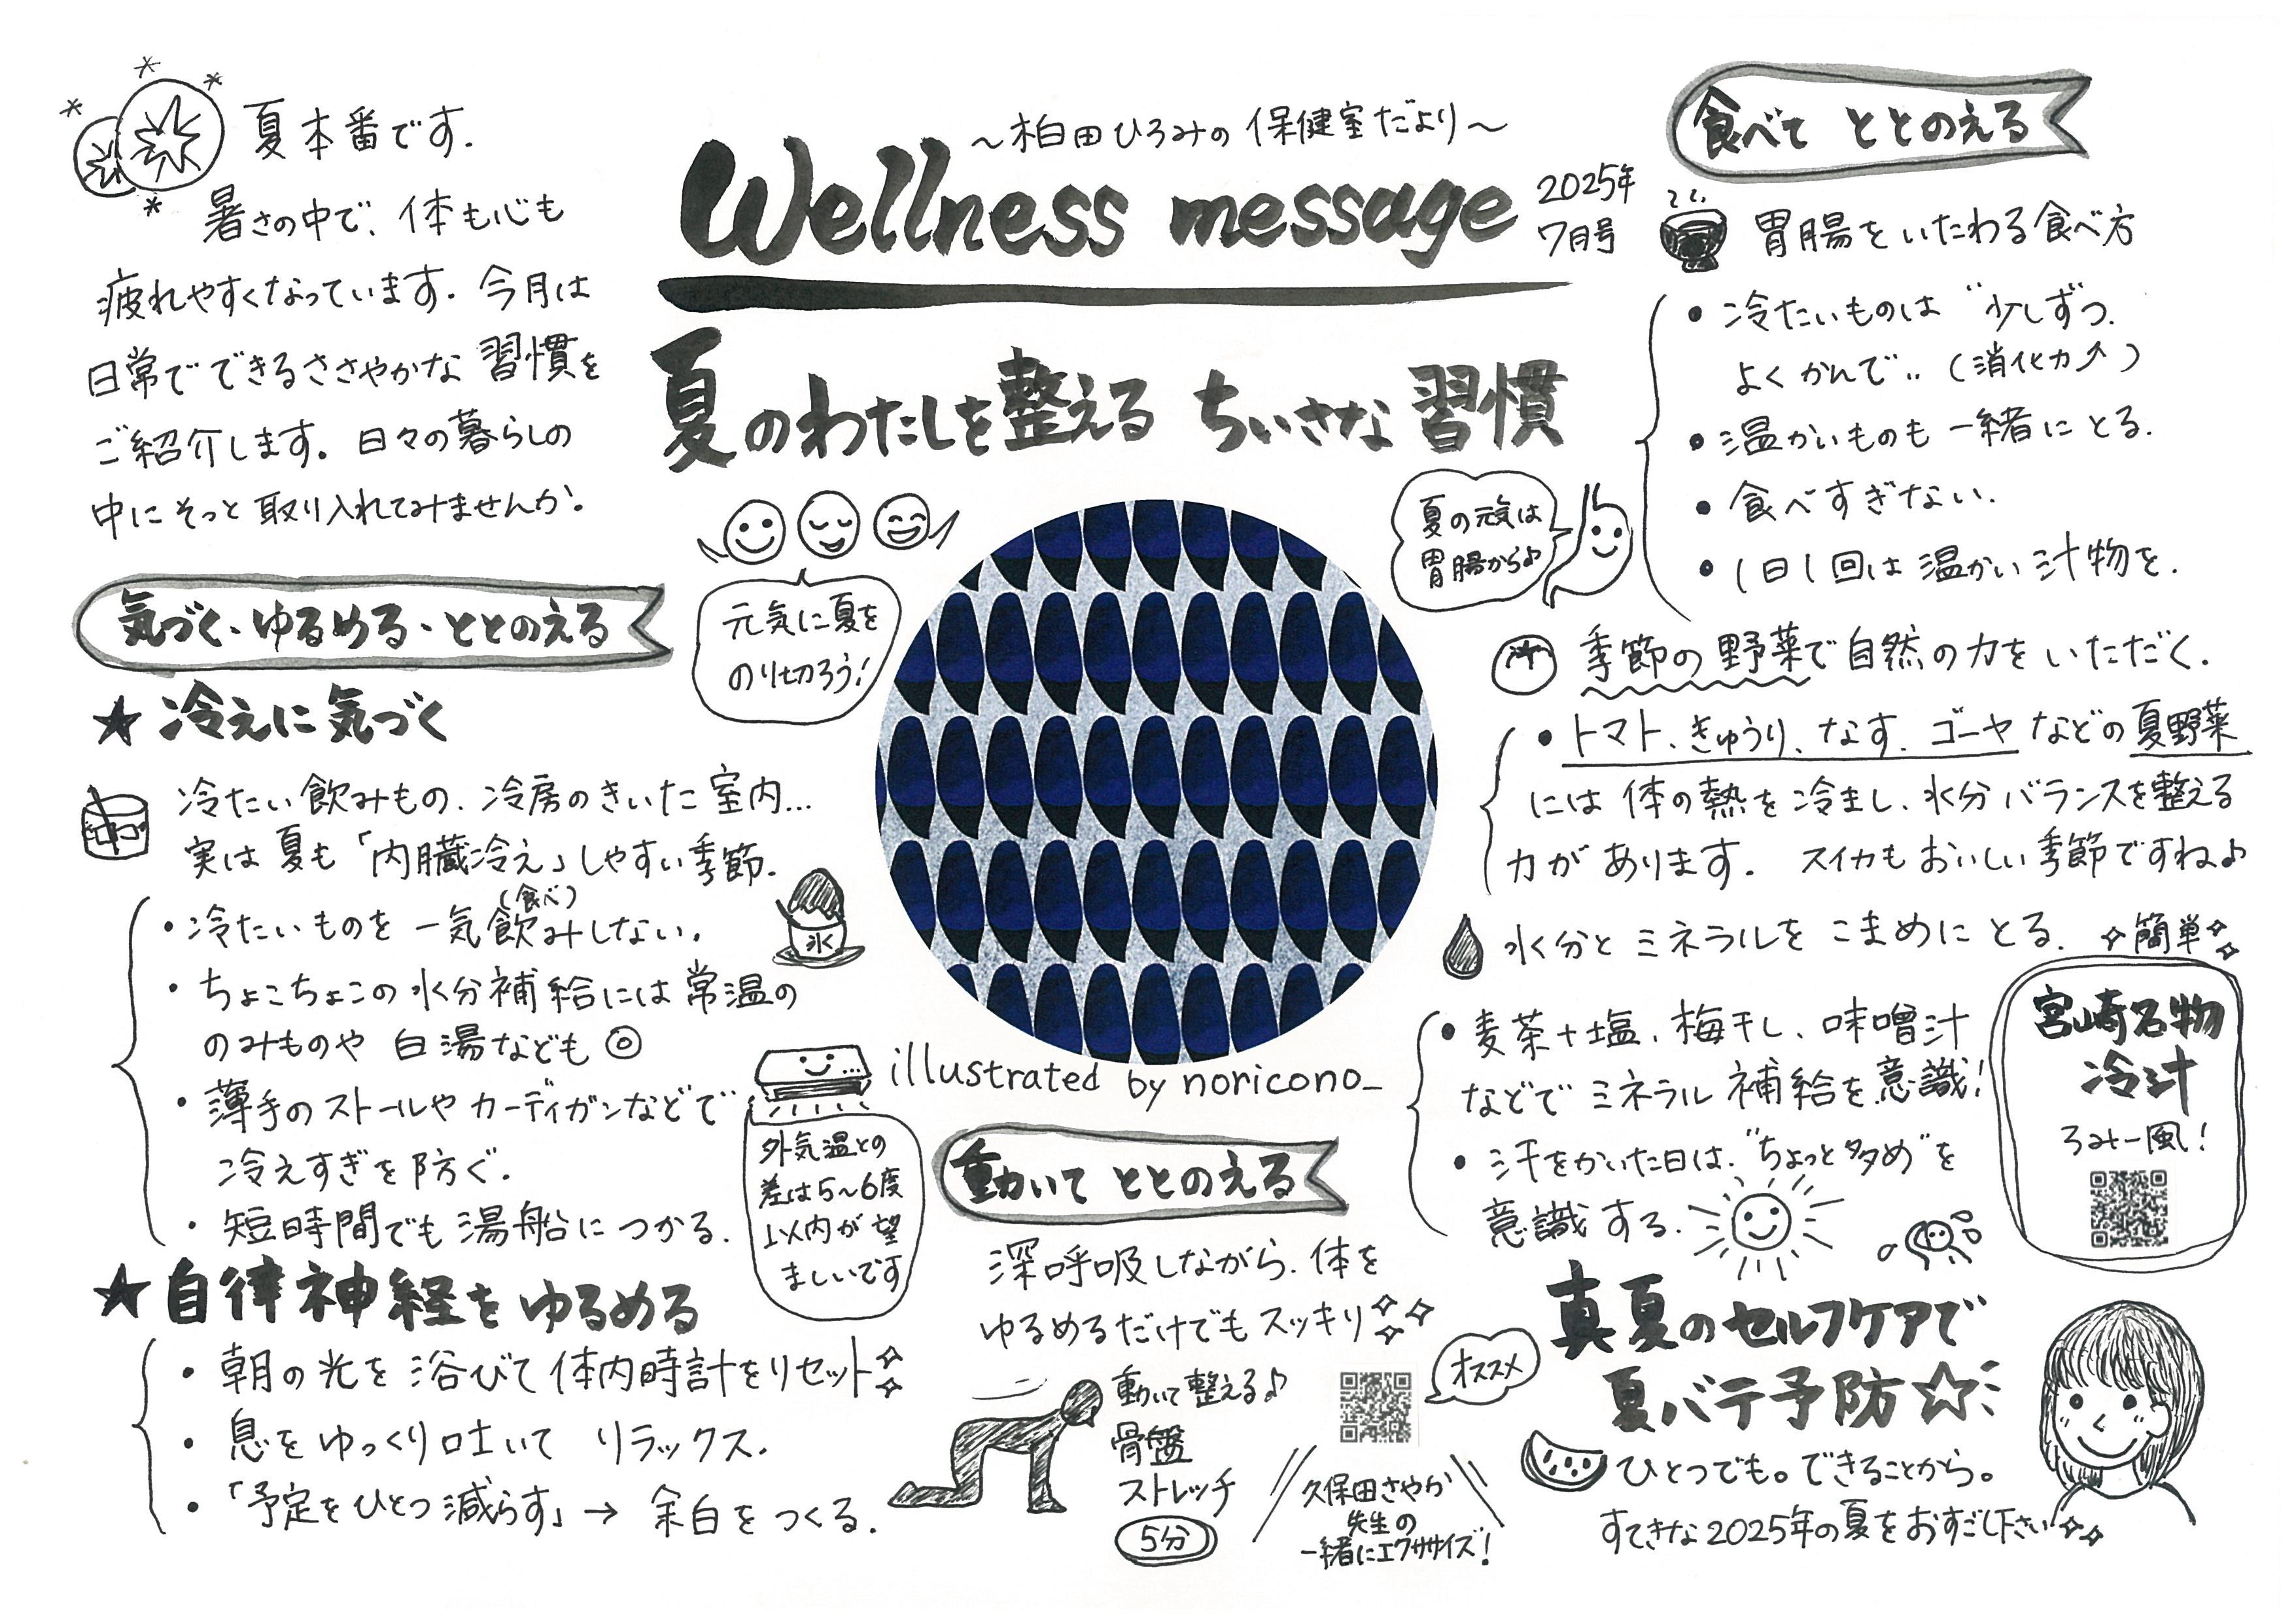 夏本番です.
暑さの中で、体も心も
疲れやすくなっています. 今月は
日常でできるささやかな 習慣を
ご紹介します。日々の暮らしの
中にそっと取り入れてみませんか。
〜柏田ひろみの保健室だより〜
Wellness message
2025年
7月号
夏のわたしを整える ちいさな 習慣
元気に夏を
のり切ろう!
夏の元気は
胃腸から♪
illustrated by noricono_
気づく、ゆるめる、ととのえる
★冷えに気づく
冷たい飲みもの、冷房のきいた室内...
実は夏も「内臓冷え」しやすい季節.
(食べ)
・冷たいものを一気飲みしない.
・ちょこちょこの水分補給には常温の
のみものや 白湯なども◎
・薄手のストールやカーディガンなどで
冷えすぎを防ぐ.
・短時間でも湯船につかる.
氷
外気温との
差は5〜6度
以内が望
ましいです
★自律神経をゆるめる
・朝の光を浴びて体内時計をリセット
・息をゆっくり吐いて リラックス.
・「予定をひとつ減らす」→ 余白をつくる.
動いて ととのえる
深呼吸しながら、体を
ゆるめるだけでもスッキリ
動いて整える♪
骨盤
ストレッチ
5分
オススメ
久保田さやか
先生の
一緒にエクササイズ!
食べて ととのえる
胃腸をいたわる食べ方
・冷たいものは “少しずつ、
よくかんで” (消化力↗)
・温かいものも一緒にとる.
・食べすぎない.
・1日1回は温かい汁物を.
季節の野菜で自然の力をいただく.
・トマト、きゅうり、なす、ゴーヤなどの夏野菜
には体の熱を冷まし、水分バランスを整える
力があります. スイカもおいしい季節ですね♪
水分とミネラルをこまめにとる.
・麦茶+塩、梅干し、味噌汁
などでミネラル補給を意識!
・汗をかいた日は、“ちょっと多め”を
意識する.
簡単
宮崎名物
冷汁
ろみー風!
真夏のセルフケアで
夏バテ予防☆
ひとつでも。できることから。
すてきな2025年の夏をおすごし下さい